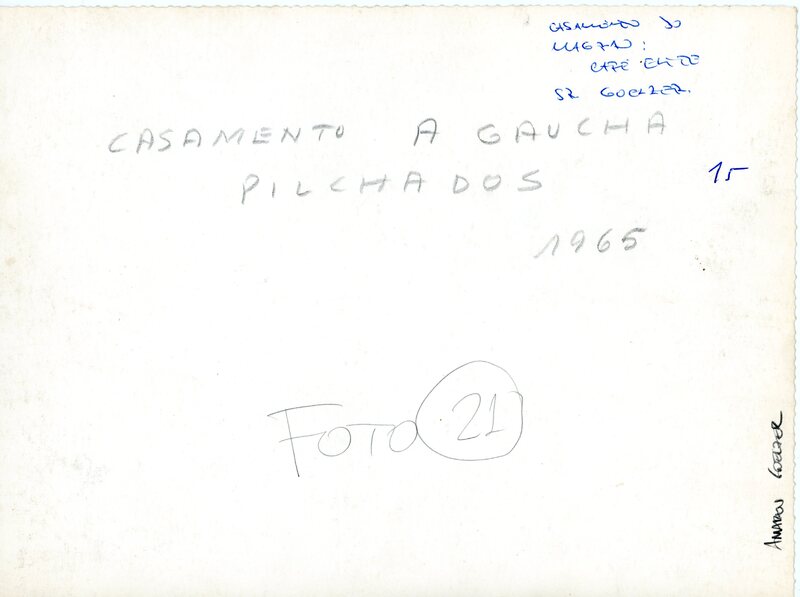 CASAMENTO DO
CAFÉ ELITE
SR GOELZER.
CASAMENTO A GAUCHA
PILCHADOS
15
1965
FOTO 21
GOELZER